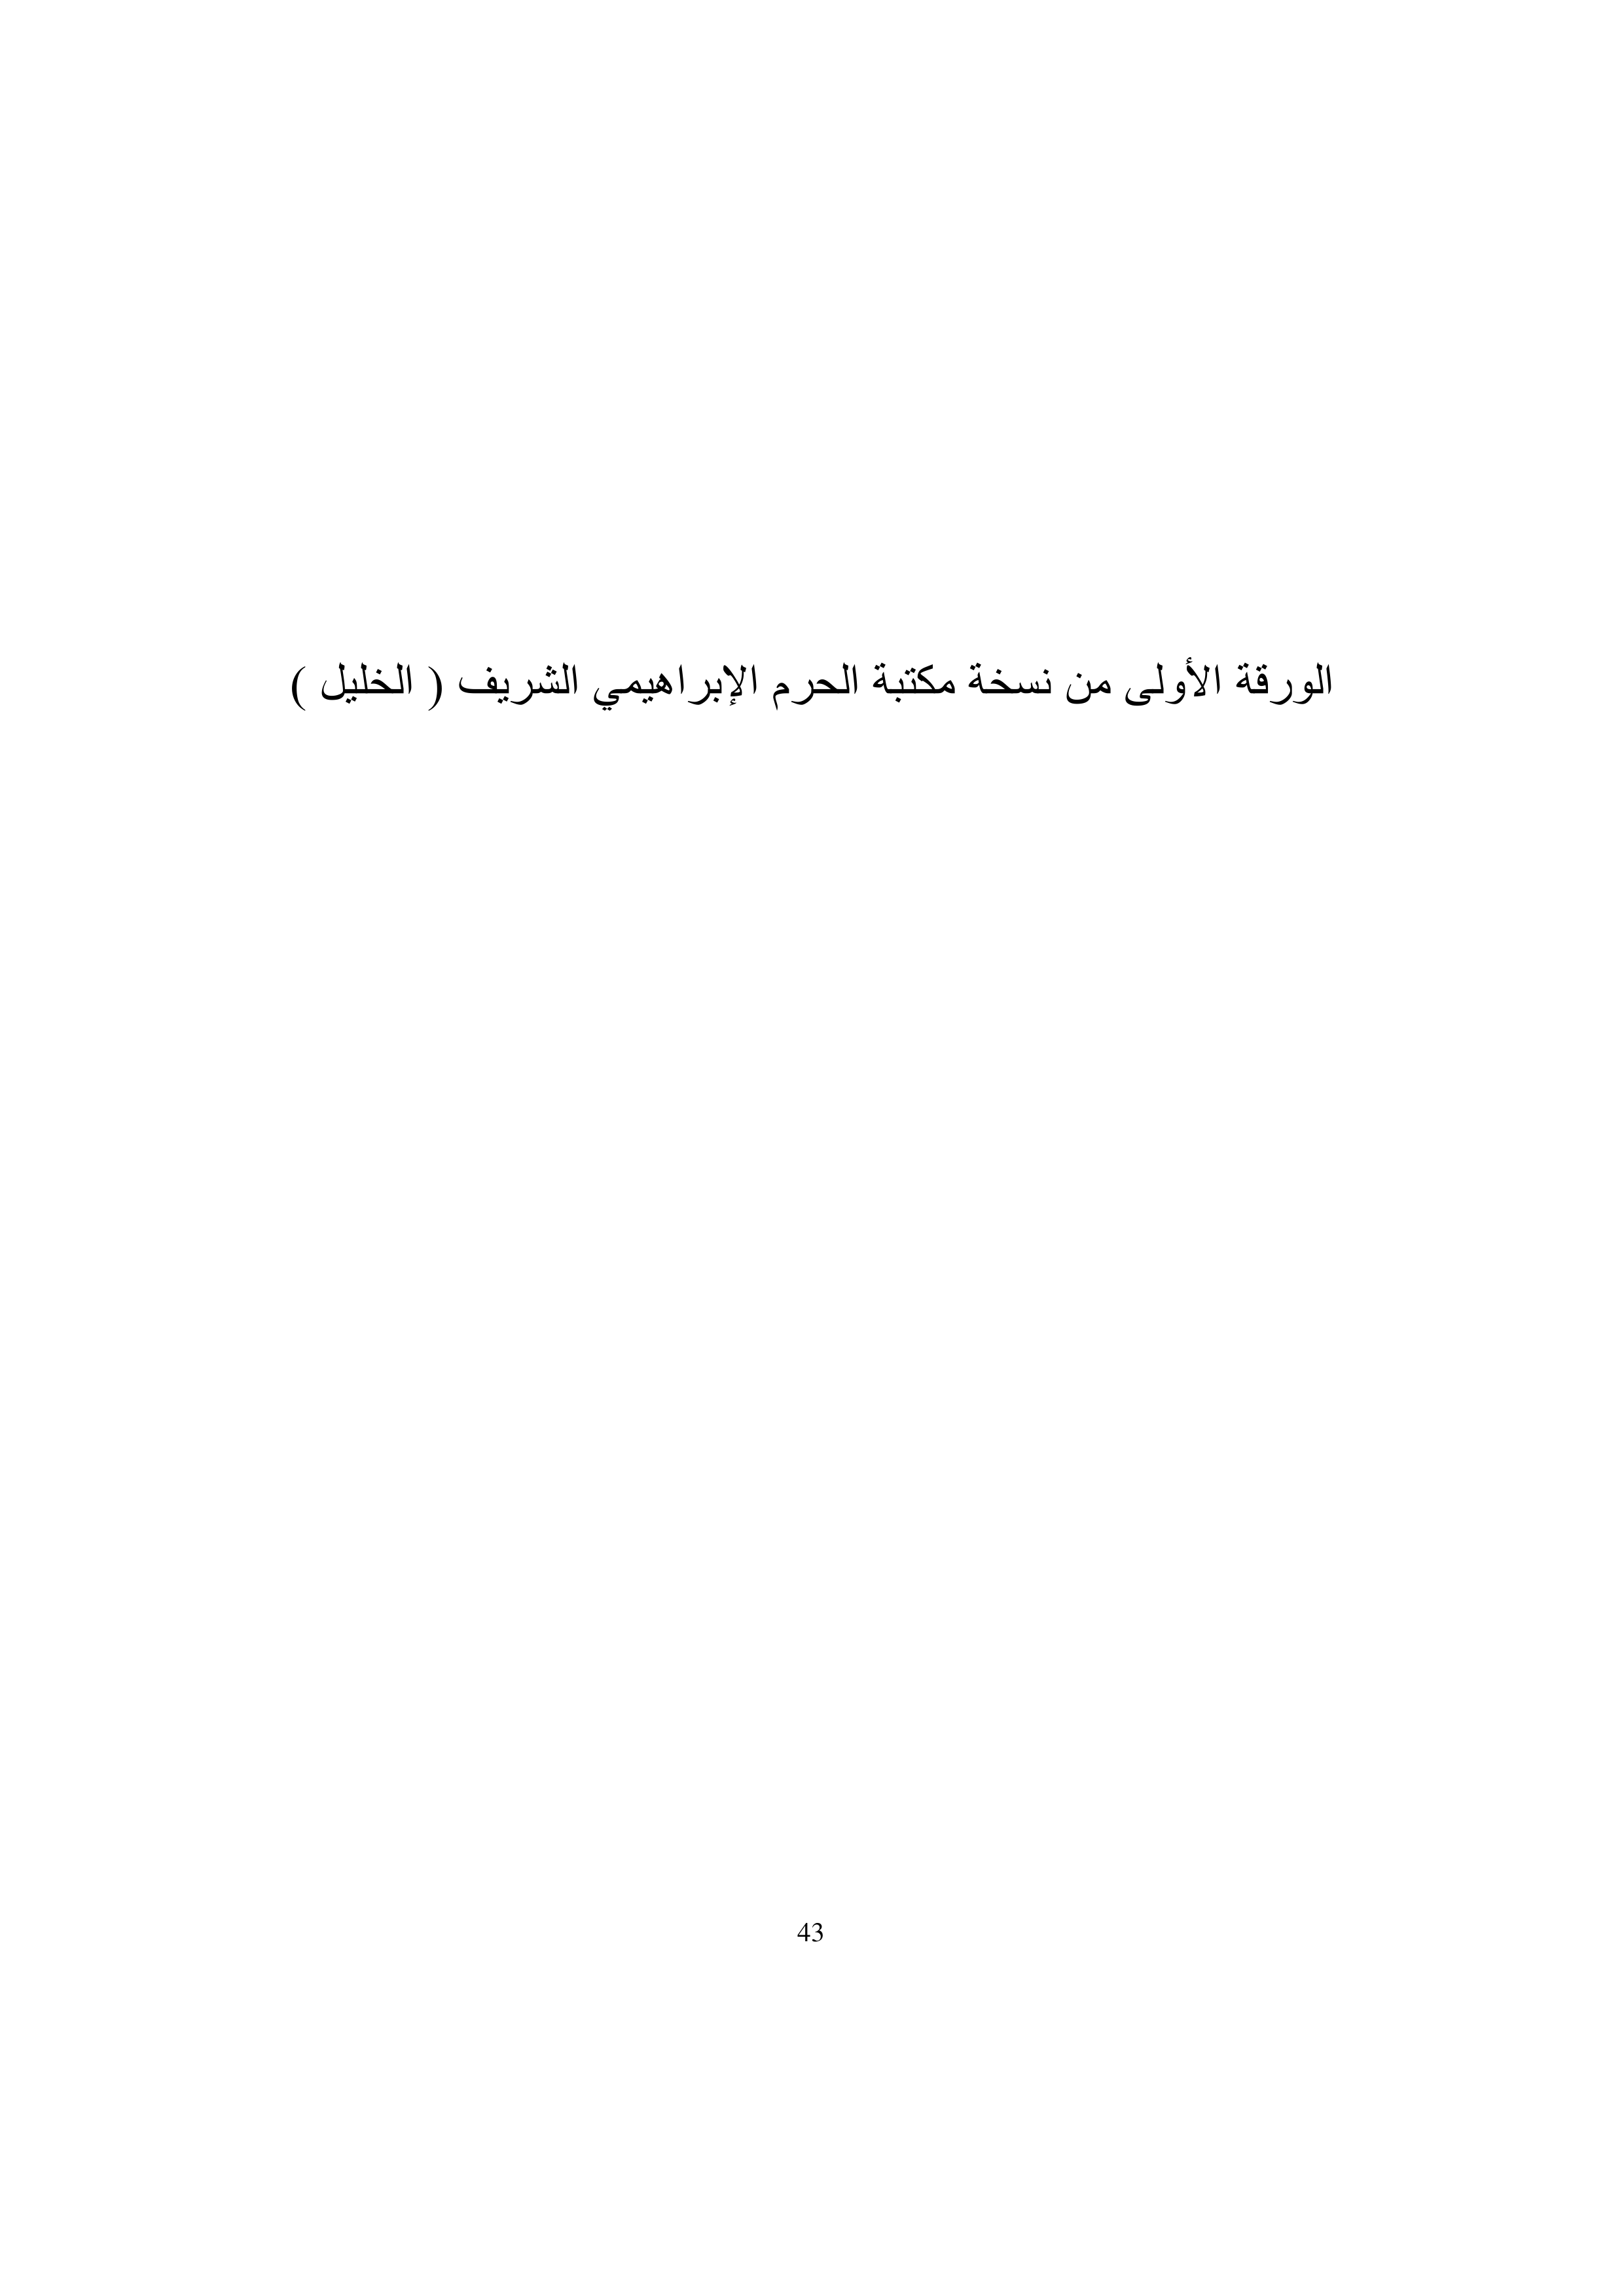 الورقة الأولى من نسخة مكتبة الحرم الإبراهيمي الشريف ( الخليل )
43